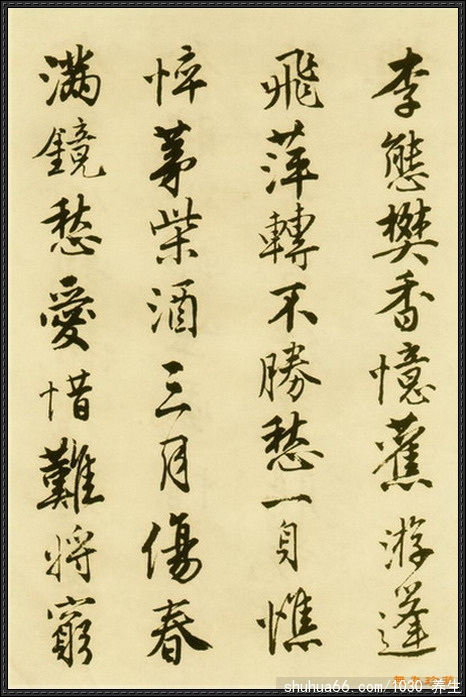 李態樊香憶舊游蓬
飛萍轉不勝愁一身憔
悴茅柴酒三月傷春
滿鏡愁愛惜難將窮
shuhua66.com/1030 养生